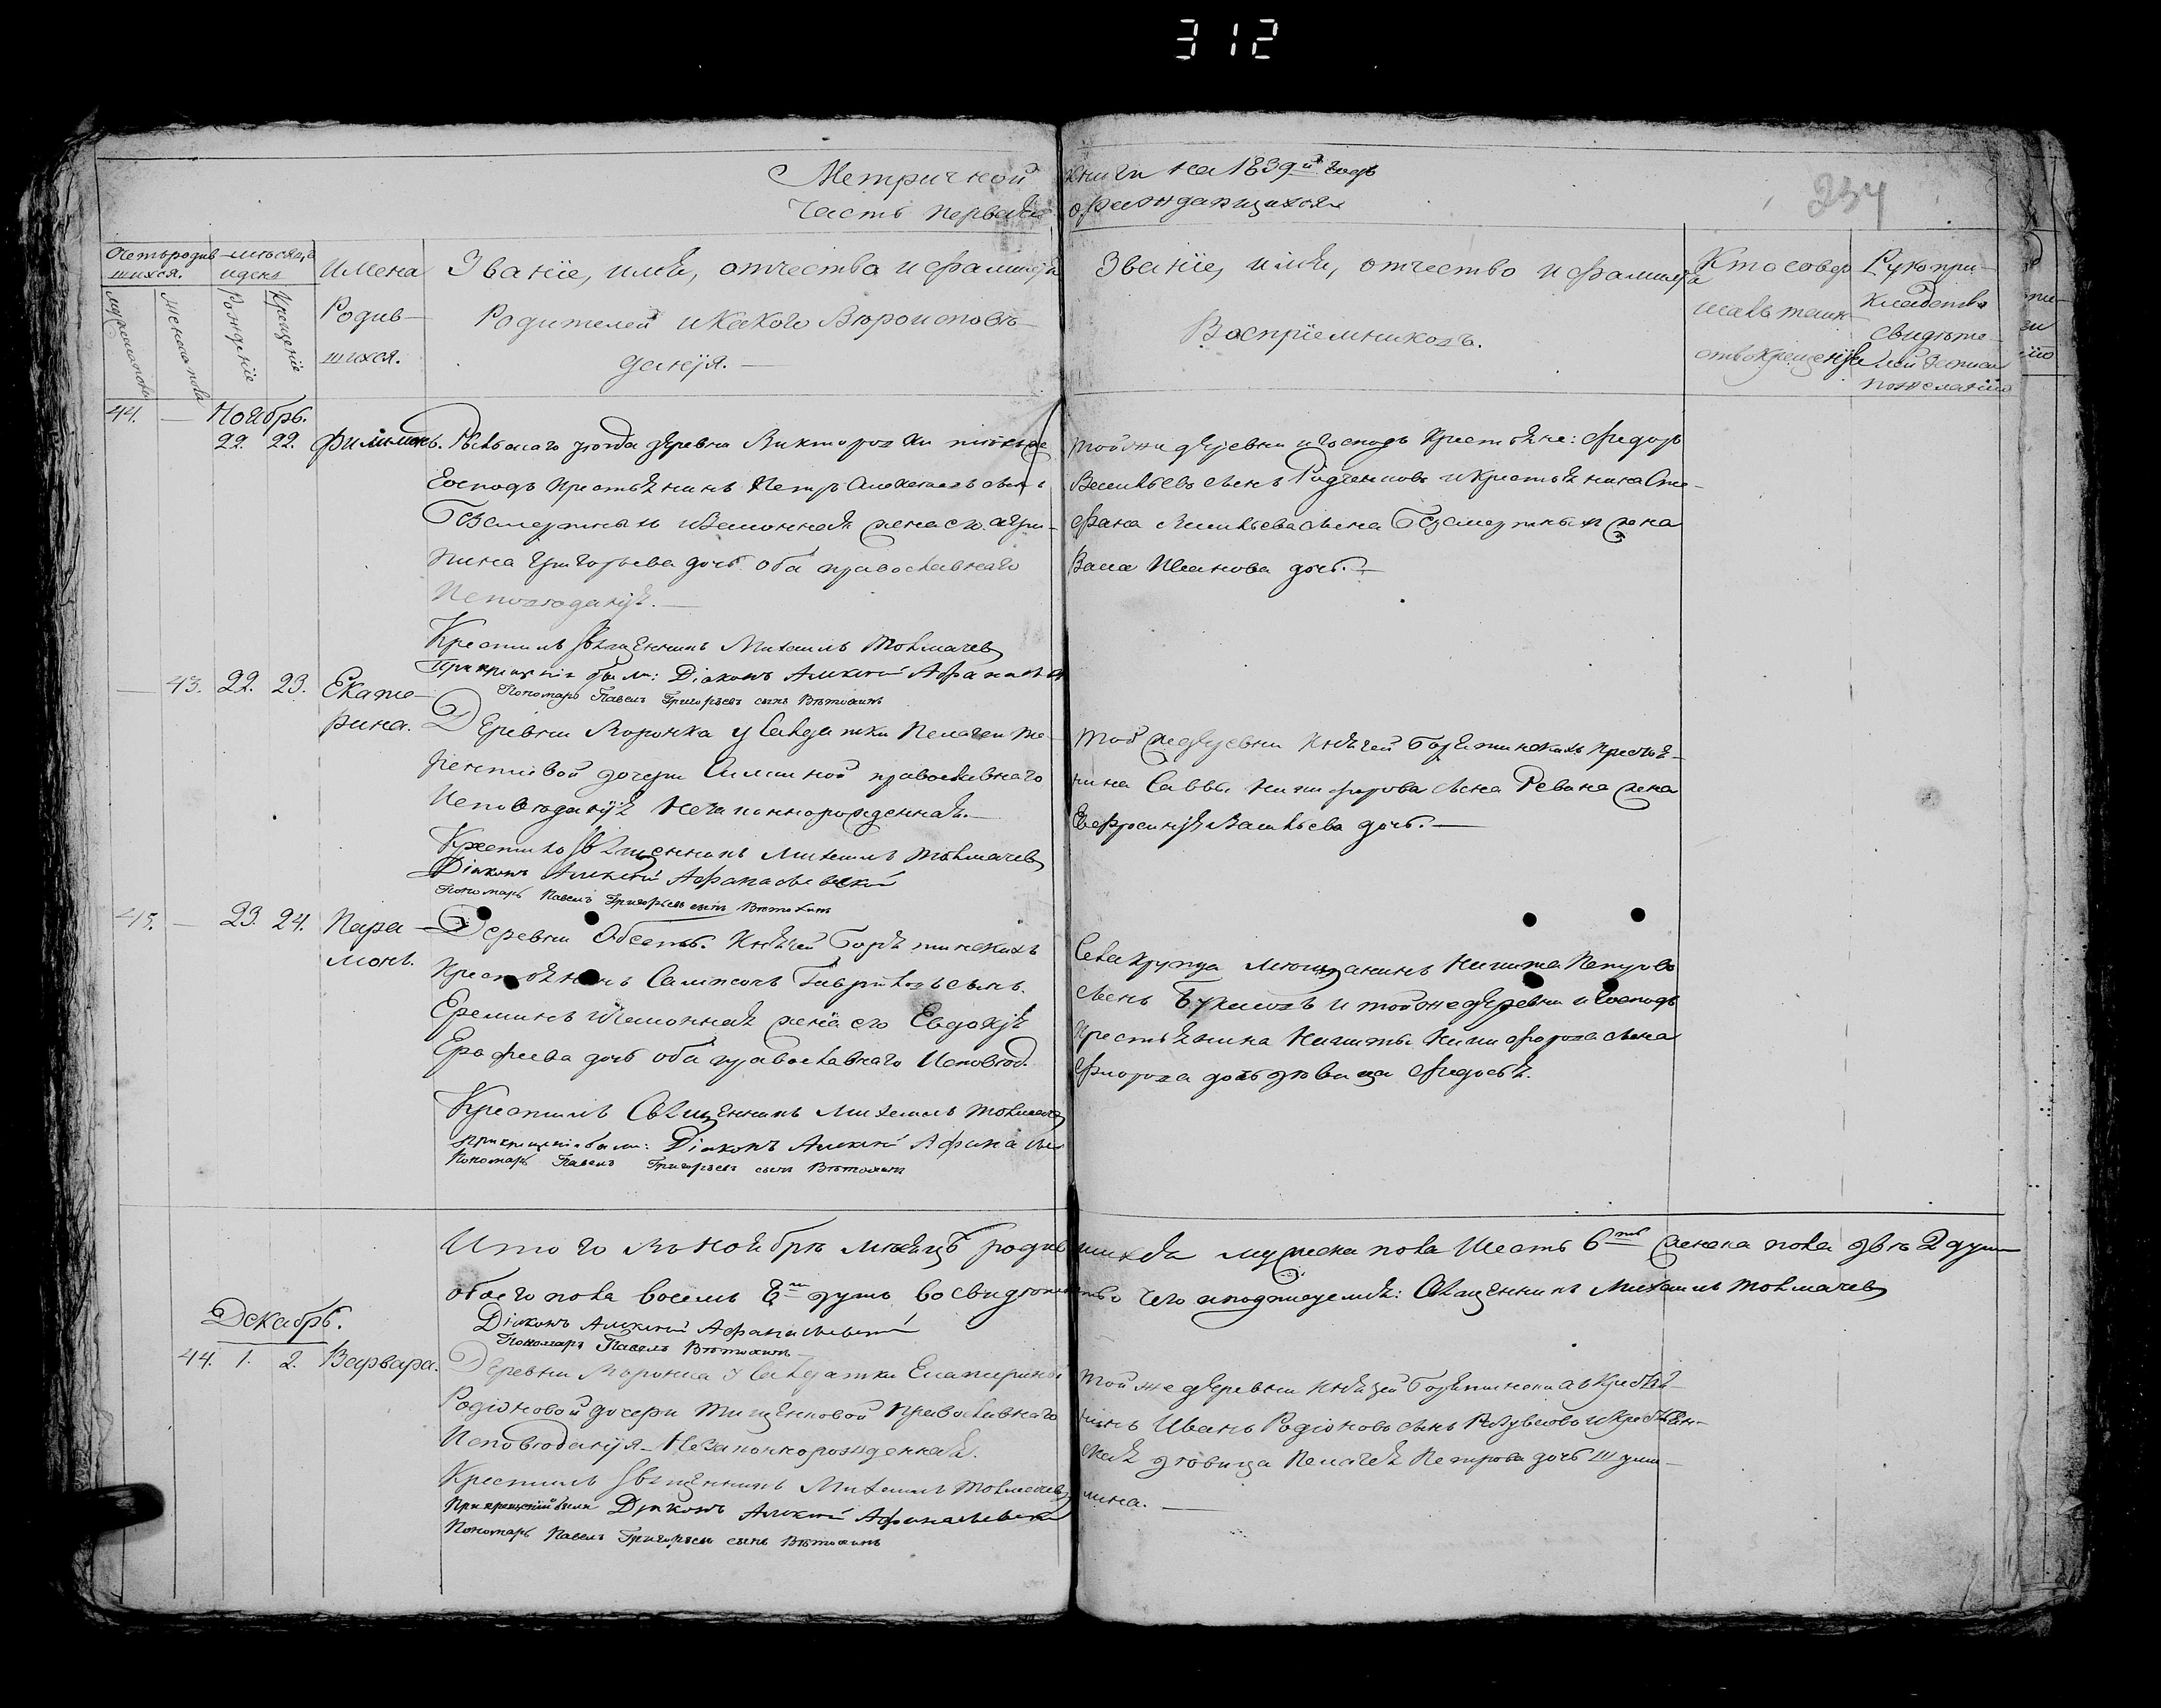 312
Метричной книги на 1839й годъ
Часть первая о рождающихся
234
Счетъ родив-
шихся.
мѣсяцъ
и день
Имена
Родив-
шихся.
Званіе, имя, отчество и фамилія
Родителей и какого Вѣроисповѣ-
данія.
Званіе, имя, отчество и фамилія
Воспріемниковъ.
Кто совер
шалъ таин-
ство крещенія
Рукопри-
кладство
свидѣте-
лей записи
по желанію
мужеска пола
женска пола
Рожденіе
Крещеніе
44. — Ноябрь.
22. 22. Филимонъ.
уѣзда деревни Викторовки
Господъ крестьянинъ Петръ сынъ
Безсмертный и законная жена его Агри-
пина Григорьева дочь оба православнаго
Исповѣданія. —
Крестилъ Священникъ Михаилъ Толмачев
При крещеніи были: Діаконъ Алексій Афанасьев
Пономарь Павелъ Григорьевъ сынъ Вѣтохинъ
той же деревни и Господъ Крестьяне: Федоръ
Васильевъ сынъ и крестьянина Сте-
фана сына Безсмертныхъ жена
Иванова дочь. —
— 43. 22. 23. Екате-
рина.
Деревни Воронка у Салдатки Пелагеи Те-
рентіевой дочери православнаго
Исповѣданія Незаконнорожденная. —
Крестилъ Священникъ Михаилъ Толмачев
Діаконъ Алексій Афанасьевскій
Пономарь Павелъ Григорьевъ сынъ Вѣтохинъ
той же деревни Князей крестья-
нина Саввы Никифорова сына Ревина жена
Евфросинія Васильева дочь. —
45. — 23. 24. Пара-
монъ.
Деревни Обеста. Князей
Крестьянинъ Сампсонъ Гавриловъ сынъ
Ереминъ и законная жена его Евдокія
Ерофеева дочь оба православнаго Исповѣд.
Крестилъ Священникъ Михаилъ Толмачев
При крещеніи были: Діаконъ Алексій Афанасьев
Пономарь Павелъ Григорьевъ сынъ Вѣтохинъ
Села Крупца мещанинъ Никита Петровъ
сынъ и той же деревни и Господъ
крестьянина Никиты Никифорова сына
дочь дѣвица Федосья.
Итого въ Ноябрѣ мѣсяцѣ родившихся мужеска пола Шесть 6ть женска пола двѣ 2 души
обоего пола восемь 8мь душъ во свидѣтельство чего и подписуемся: Священникъ Михаилъ Толмачев
Діаконъ Алексій Афанасьевскій
Пономарь Павелъ Вѣтохинъ
Декабрь.
44. 1. 2. Варвара.
Деревни Воронка у Салдатки Екатерины
Родіоновой дочери Тищенковой Православнаго
Исповѣданія – Незаконнорожденная.
Крестилъ Священникъ Михаилъ Толмачев
При крещеніи были Діаконъ Алексій Афанасьевскій
Пономарь Павелъ Григорьевъ сынъ Вѣтохинъ
той же деревни Князей крестья-
нинъ Иванъ Родіоновъ сынъ и крестьян-
ская дѣвица Пелагея Петрова дочь